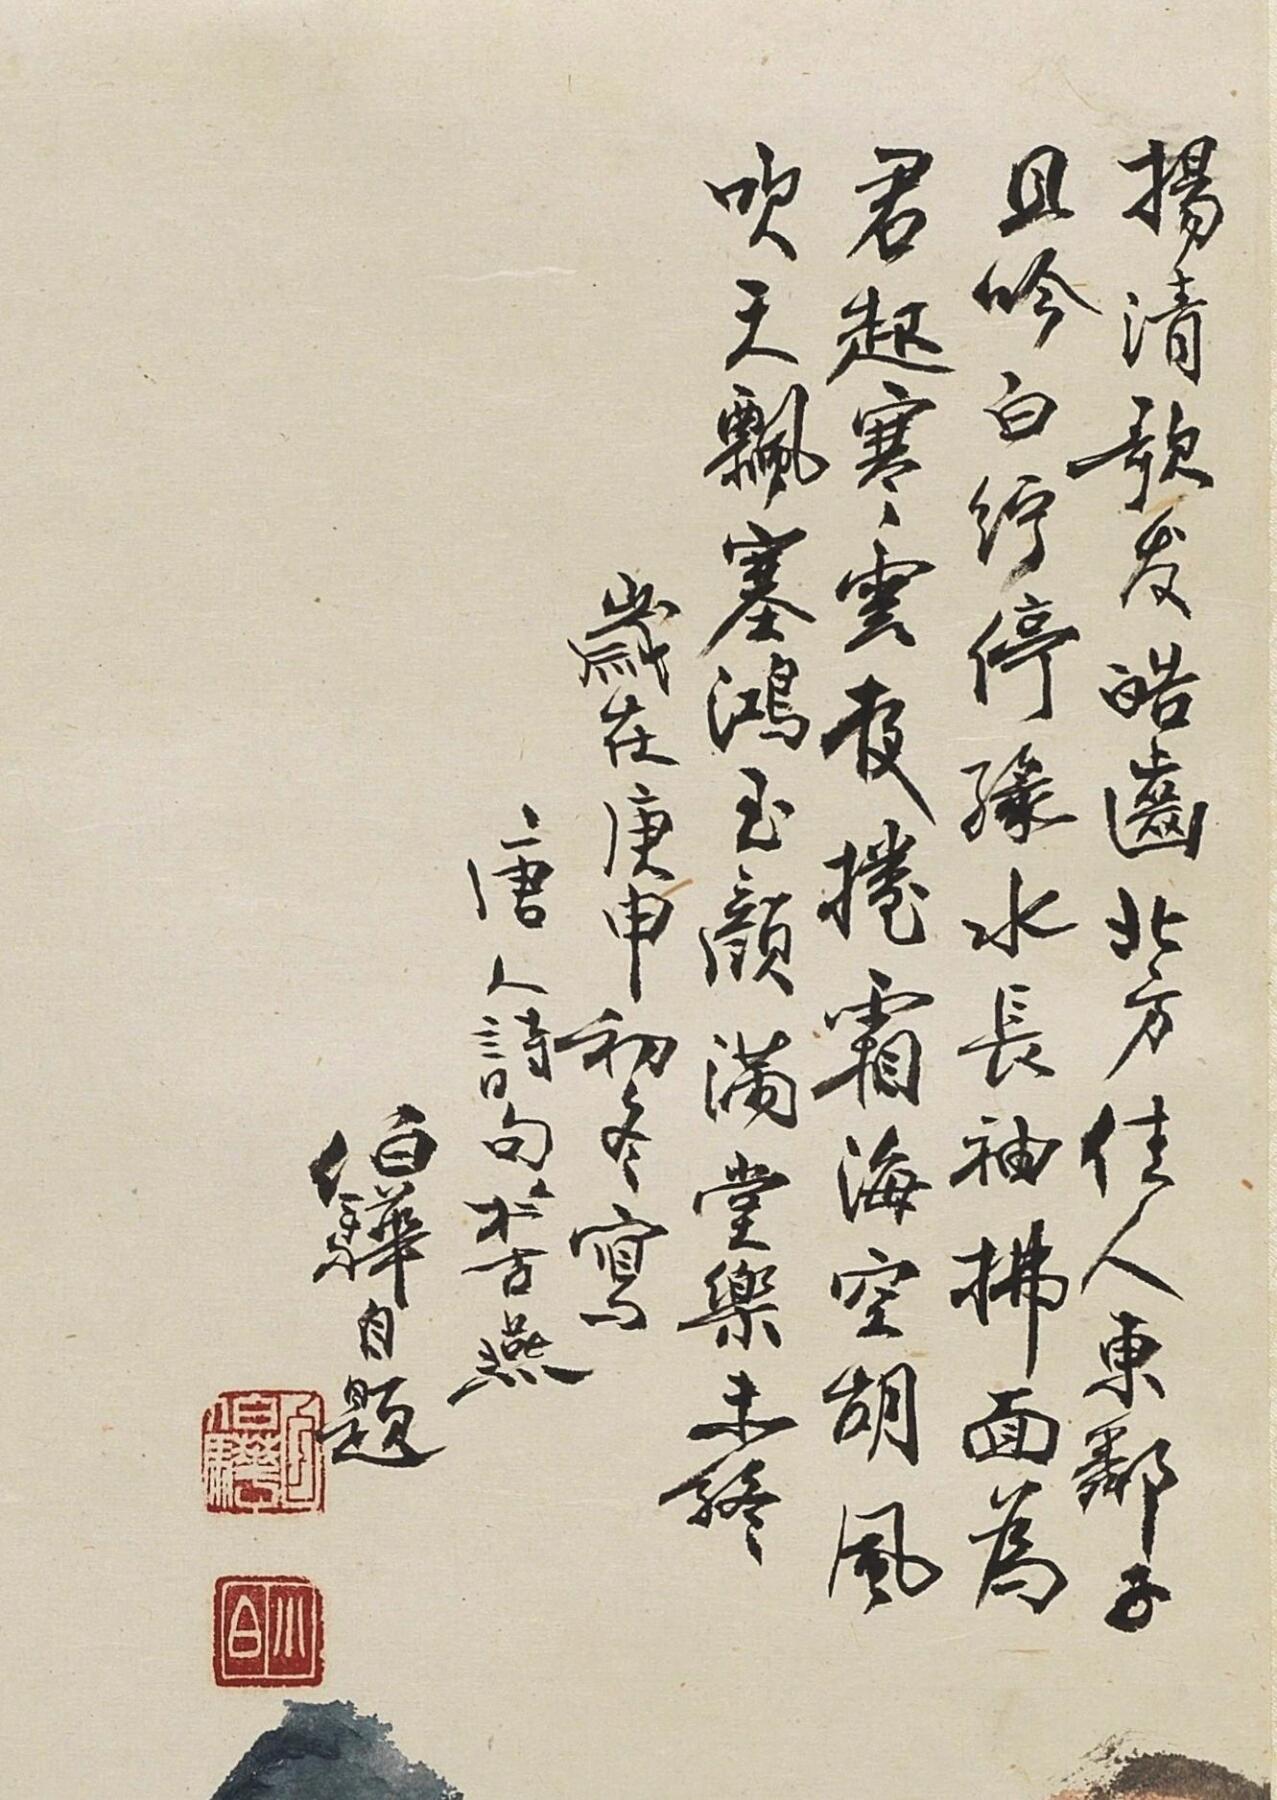 揚清歌发皓齒北方佳人東鄰子
且吟白紵停綠水長袖拂面為
君起寒雲夜捲霜海空胡風
吹天飄塞鴻玉顏滿堂樂未終
歲在庚申初冬寫
唐人詩句於古燕
伯驊自題
伯驊